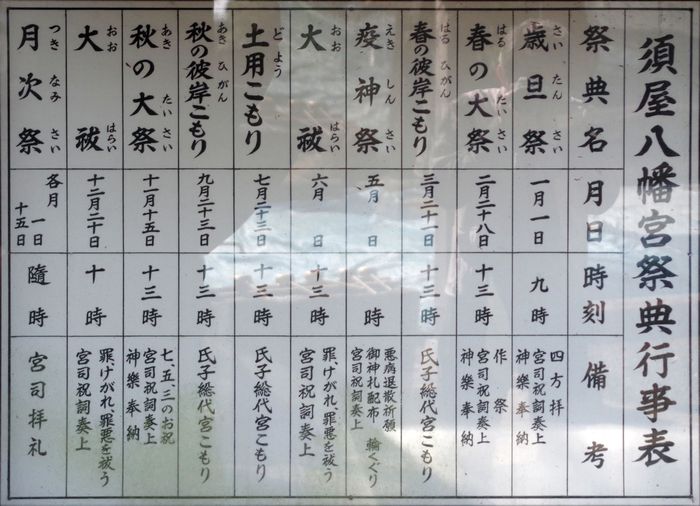 須屋八幡宮祭典行事表
祭典名
月日
時刻
備考
歳旦祭
さいたんさい
一月一日
九時
四方拝
宮司祝詞奏上
神樂奉納
春の大祭
はるたいさい
二月二十八日
十三時
作祭
宮司祝詞奏上
神樂奉納
春の彼岸こもり
はるひがん
三月二十一日
十三時
氏子総代宮こもり
疫神祭
えきしんさい
五月 日
時
悪病退散祈願
御神札配布 輪くぐり
宮司祝詞奏上
大祓
おおはらい
六月 日
十三時
罪、けがれ、罪悪を祓う
宮司祝詞奏上
土用こもり
どよう
七月二十三日
十三時
氏子総代宮こもり
秋の彼岸こもり
あきひがん
九月二十三日
十三時
氏子総代宮こもり
秋の大祭
あきたいさい
十一月十五日
十三時
七、五、三のお祝
宮司祝詞奏上
神樂奉納
大祓
おおはらい
十二月二十日
十時
罪、けがれ、罪悪を祓う
宮司祝詞奏上
月次祭
つきなみさい
各月 一日
十五日
隨時
宮司拝礼